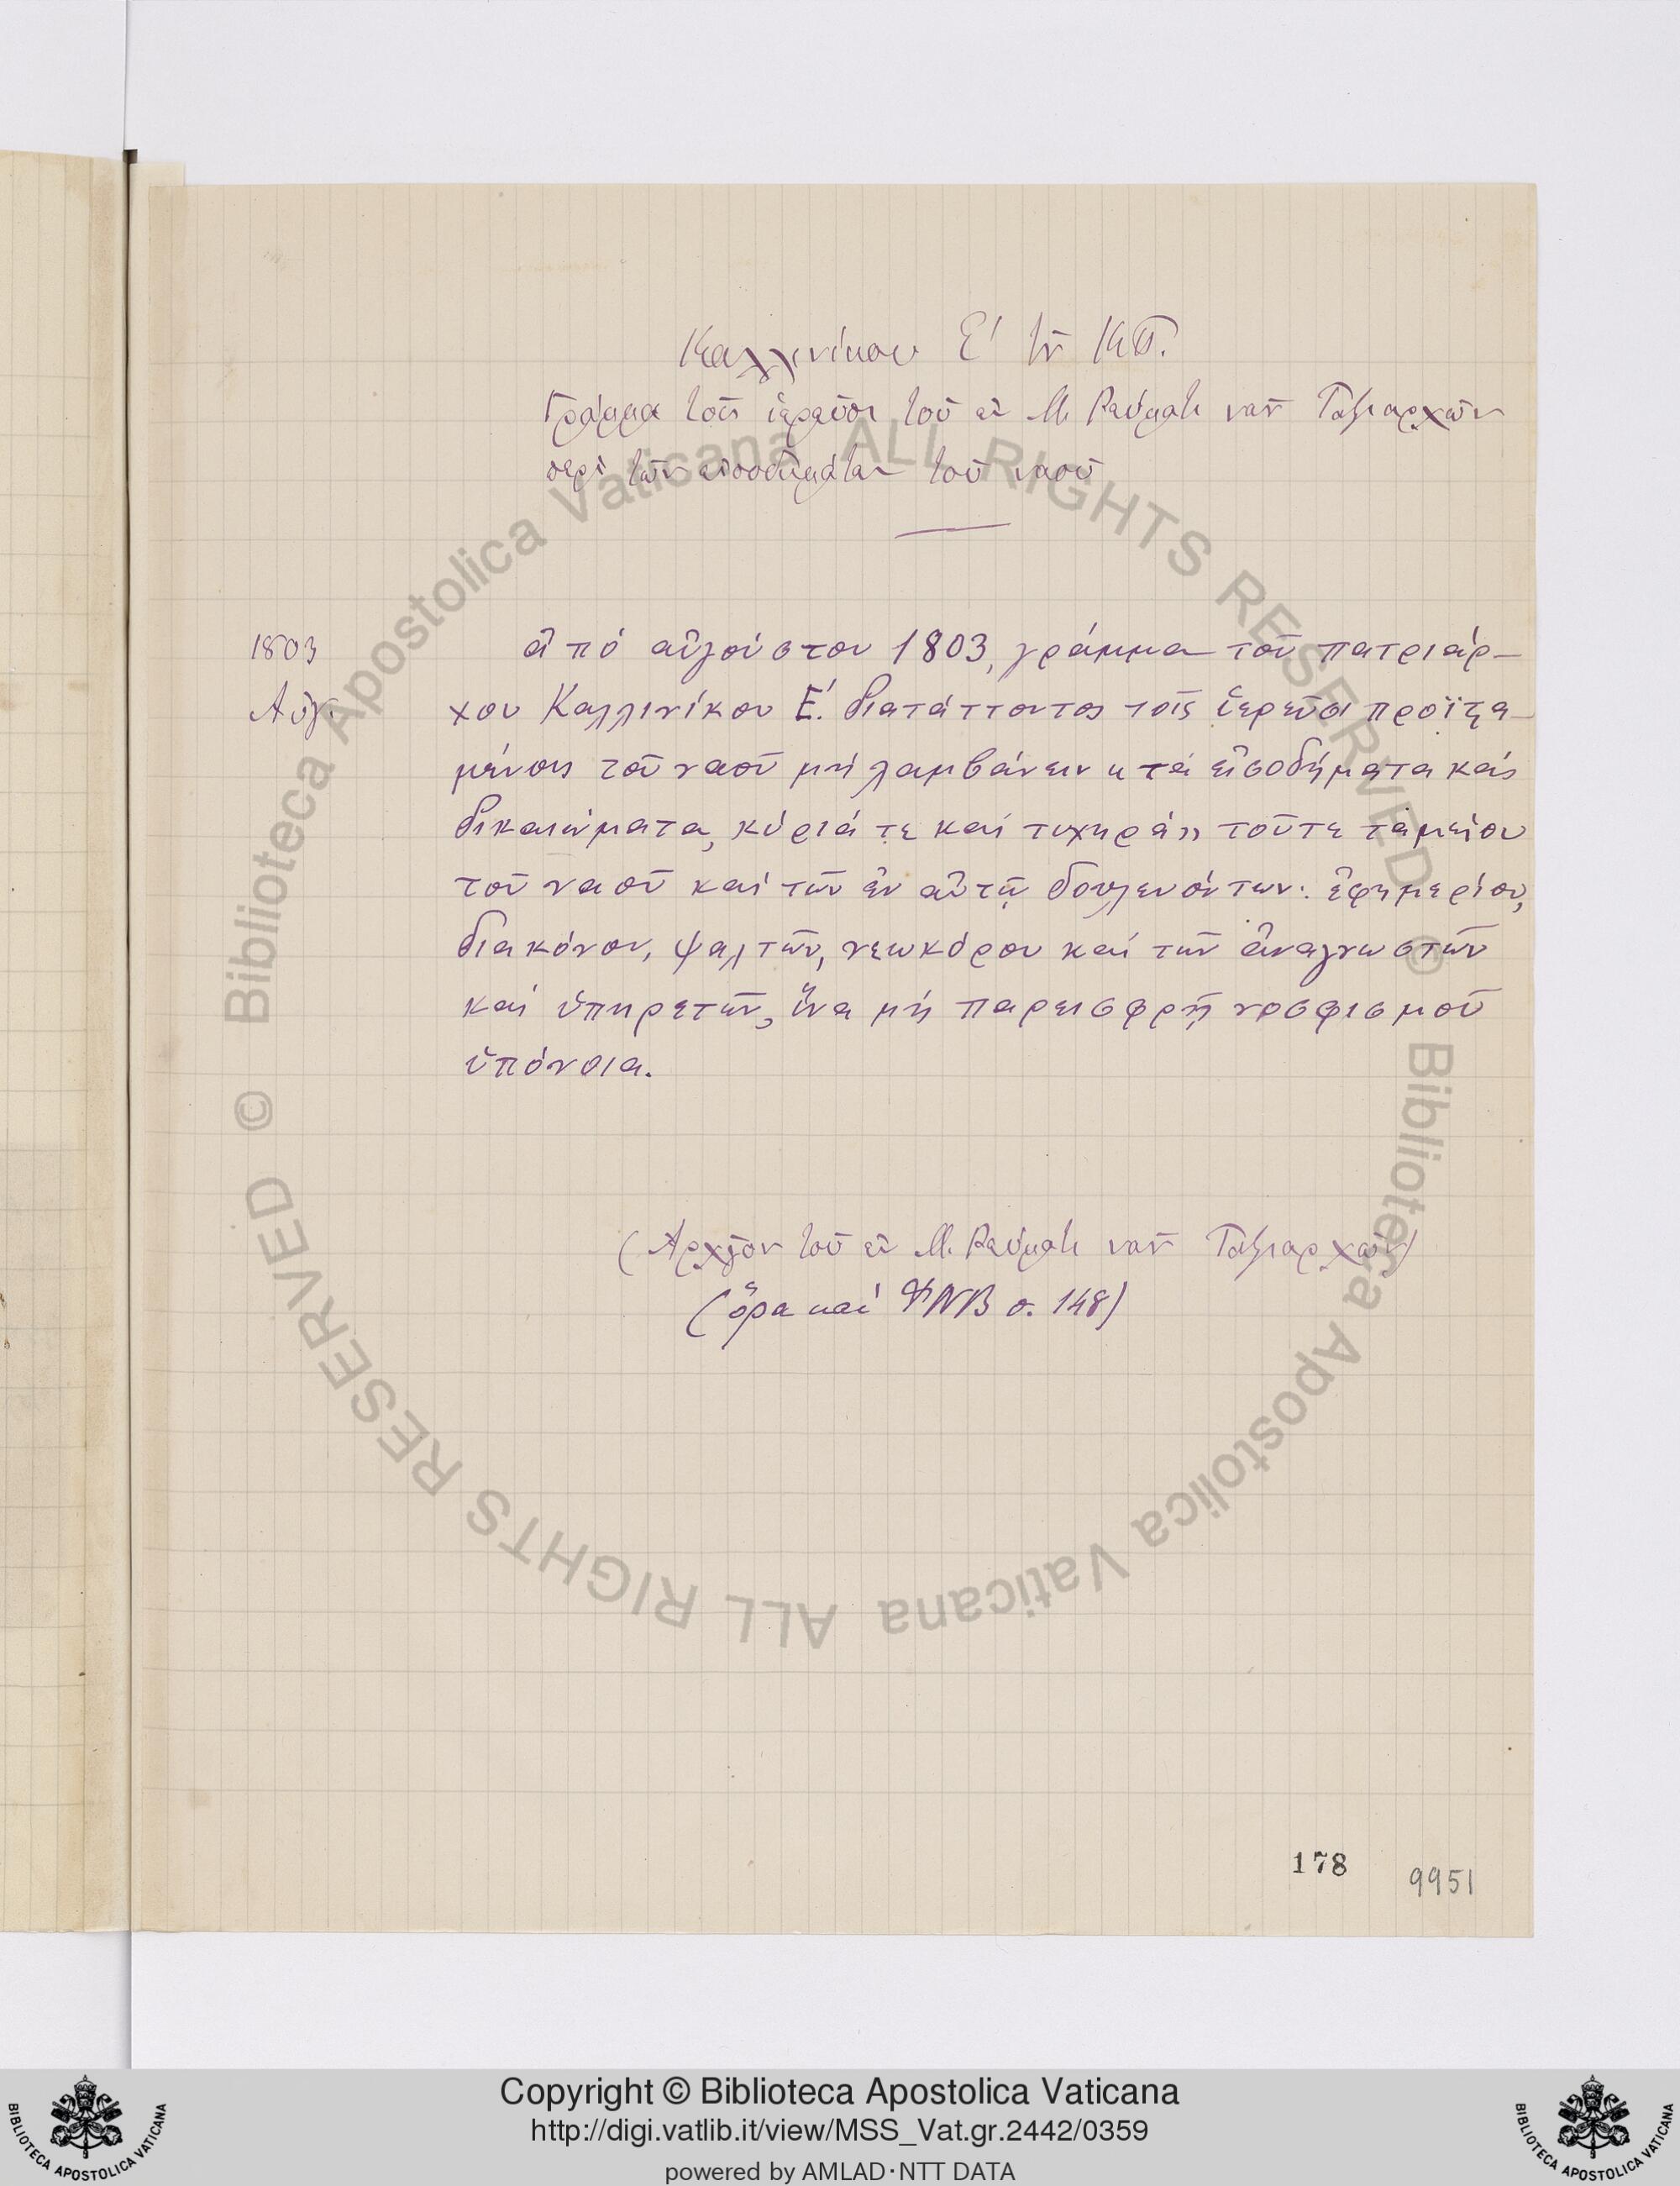 Καλλινίκου Ε΄ τῆς ΚΠ.
Γράμμα τοῖς ἱερεῦσι τοῦ ἐν Μ. Ρεύματι ναοῦ Ταξιαρχῶν
περὶ τῶν εἰσοδημάτων τοῦ ναοῦ
1803
Αὔγ.
ἀπό αὐγούστου 1803, γράμμα τοῦ πατριάρ-
χου Καλλινίκου Ε΄. διατάττοντος τοῖς ἱερεῦσι προϊσα-
μένοις τοῦ ναοῦ μή λαμβάνειν τά εἰσοδήματα καί
δικαιώματα, κύριά τε καί τυχηρά τοῦτε ταμείου
τοῦ ναοῦ καί τῶν ἐν αὐτῷ δουλευόντων: ἐφημερίου,
διακόνου, ψαλτῶν, νεωκόρου καί τῶν ἀναγνωστῶν
καί ὑπηρετῶν, ἵνα μή παρεισφρῇ νοσφισμοῦ
ὑπόνοια.
(Ἀρχεῖον τοῦ ἐν Μ. Ρεύματι ναοῦ Ταξιαρχῶν)
(ὅρα καί ΝΒ σ. 148)
178 9951
© Biblioteca Apostolica Vaticana ALL RIGHTS RESERVED © Biblioteca Apostolica Vaticana ALL RIGHTS RESERVED
Copyright © Biblioteca Apostolica Vaticana
http://digi.vatlib.it/view/MSS_Vat.gr.2442/0359
powered by AMLAD·NTT DATA
BIBLIOTECA APOSTOLICA VATICANA
BIBLIOTECA APOSTOLICA VATICANA